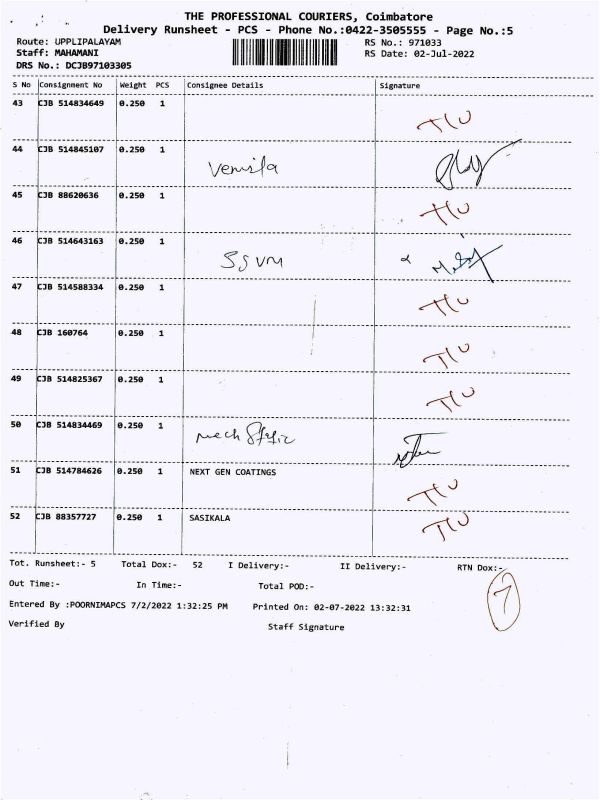 THE PROFESSIONAL COURIERS, Coimbatore
Delivery Runsheet - PCS - Phone No.:0422-3505555 - Page No.:5
Route: UPPLIPALAYAM RS No.: 971033
Staff: MAHAMANI RS Date: 02-Jul-2022
DRS No.: DCJB97103305
S No Consignment No Weight PCS Consignee Details Signature
43 CJB 514834649 0.250 1 TIU
44 CJB 514845107 0.250 1
45 CJB 88620636 0.250 1 TIU
46 CJB 514643163 0.250 1 SSVM
47 CJB 514588334 0.250 1 TIU
48 CJB 160764 0.250 1 TIU
49 CJB 514825367 0.250 1 TIU
50 CJB 514834469 0.250 1 mech
51 CJB 514784626 0.250 1 NEXT GEN COATINGS TIU
52 CJB 88357727 0.250 1 SASIKALA TIU
Tot. Runsheet:- 5 Total Dox:- 52 I Delivery:- II Delivery:- RTN Dox:-
Out Time:- In Time:- Total POD:- 7
Entered By :POORNIMAPCS 7/2/2022 1:32:25 PM Printed On: 02-07-2022 13:32:31
Verified By Staff Signature